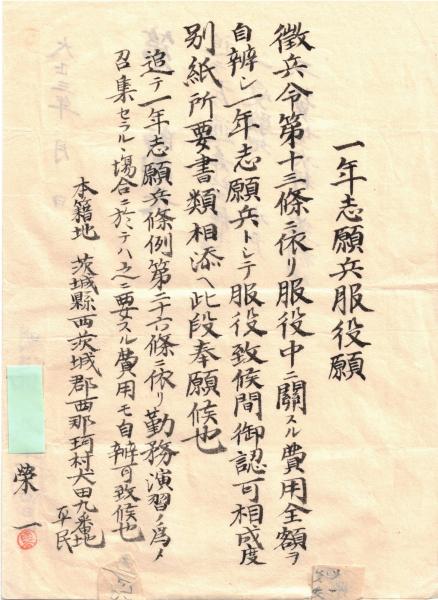 一年志願兵服役願
徴兵令第十三條ニ依リ服役中ニ關スル費用全額ヲ
自辨シ一年志願兵トシテ服役致候間御認可相成度
別紙所要書類相添ヘ此段奉願候也
追テ一年志願兵條例第二十六條ニ依リ勤務演習ノ爲メ
召集セラルヽ場合ニ於テハ之ニ要スル費用モ自辨可致候也
本籍地 茨城縣西茨城郡西那珂村犬田九番地
平民
榮一
大正三年 月 日